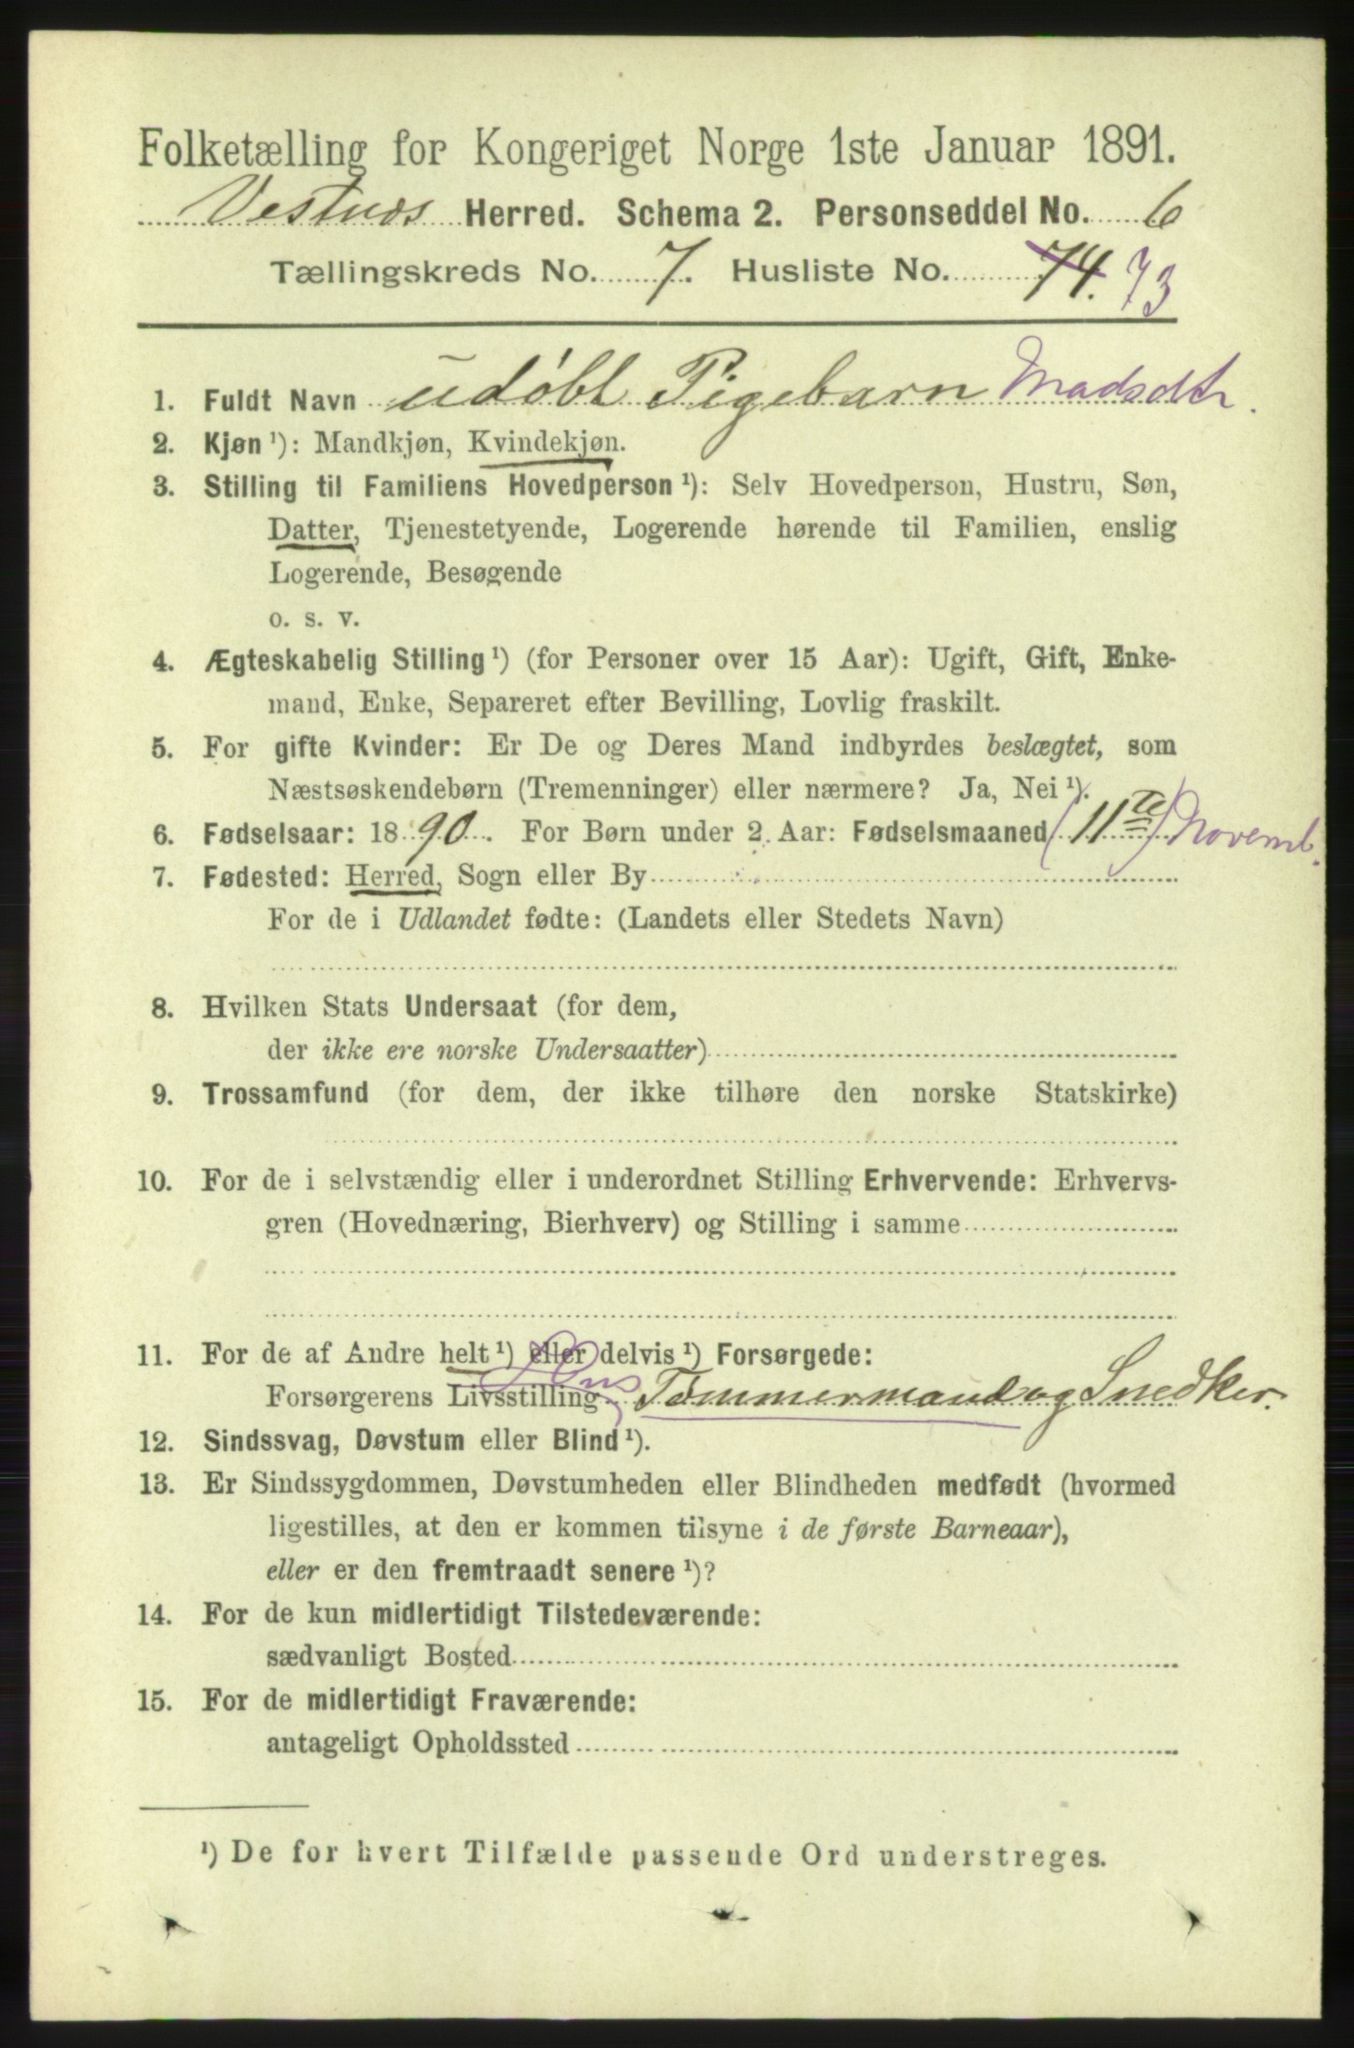 Folketælling for Kongeriget Norge 1ste Januar 1891.
Vestnæs Herred. Schema 2. Personseddel No. 6
Tællingskreds No. 7. Husliste No. 74. 73
1. Fuldt Navn udøbt Pigebarn Madsdtr.
2. Kjøn ¹): Mandkjøn, Kvindekjøn.
3. Stilling til Familiens Hovedperson ¹): Selv Hovedperson, Hustru, Søn,
Datter, Tjenestetyende, Logerende hørende til Familien, enslig
Logerende, Besøgende
o. s. v.
4. Ægteskabelig Stilling ¹) (for Personer over 15 Aar): Ugift, Gift, Enke-
mand, Enke, Separeret efter Bevilling, Lovlig fraskilt.
5. For gifte Kvinder: Er De og Deres Mand indbyrdes beslægtet, som
Næstsøskendebørn (Tremenninger) eller nærmere? Ja, Nei ¹).
6. Fødselsaar: 1890. For Børn under 2 Aar: Fødselsmaaned (11te) Novemb.
7. Fødested: Herred, Sogn eller By
For de i Udlandet fødte: (Landets eller Stedets Navn)
8. Hvilken Stats Undersaat (for dem,
der ikke ere norske Undersaatter)
9. Trossamfund (for dem, der ikke tilhøre den norske Statskirke)
10. For de i selvstændig eller i underordnet Stilling Erhvervende: Erhvervs-
gren (Hovednæring, Bierhverv) og Stilling i samme
11. For de af Andre helt ¹) eller delvis ¹) Forsørgede:
Forsørgerens Livsstilling Tømmermand og Snedker.
12. Sindssvag, Døvstum eller Blind ¹).
13. Er Sindssygdommen, Døvstumheden eller Blindheden medfødt (hvormed
ligestilles, at den er kommen tilsyne i de første Barneaar),
eller er den fremtraadt senere ¹)?
14. For de kun midlertidigt Tilstedeværende:
sædvanligt Bosted
15. For de midlertidigt Fraværende:
antageligt Opholdssted
¹) De for hvert Tilfælde passende Ord understreges.